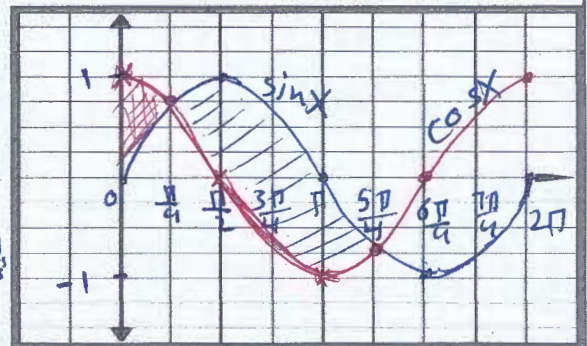 1
sinx
cosx
0
π/4
π/2
3π/4
π
5π/4
6π/4
7π/4
2π
-1